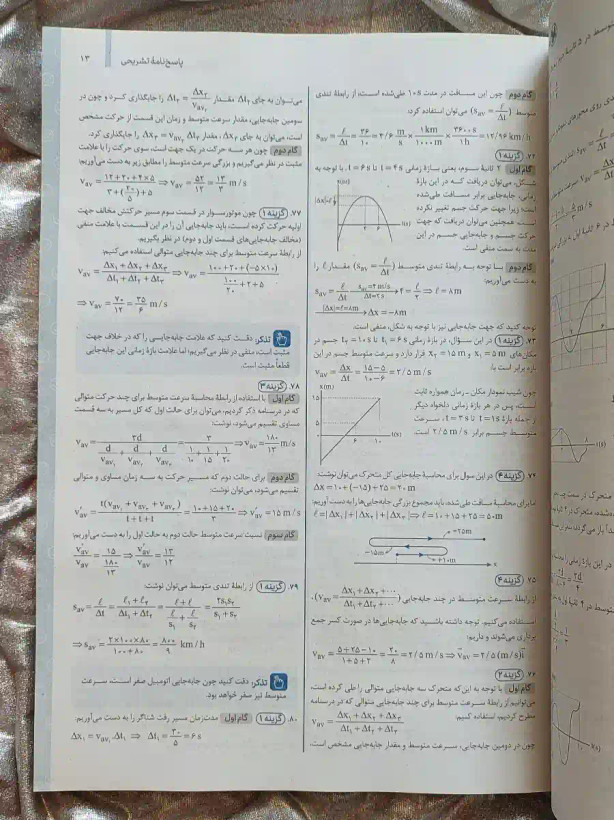 پاسخ‌نامهٔ تشریحی ۱۳
گام دوم چون این مسافت در مدت ۱۰s طی‌شده است، از رابطهٔ تندی
متوسط (s_av = ℓ/Δt) می‌توان استفاده کرد:
s_av = ℓ/Δt = ۳۶/۱۰ = ۳/۶ m/s × ۱km/۱۰۰۰m × ۳۶۰۰s/۱h = ۱۲/۹۶ km/h
۷۲. گزینهٔ ۱
گام اول ۲ ثانیهٔ سوم، یعنی بازهٔ زمانی t = ۴s تا t = ۶s. با توجه به
شکل، می‌توان دریافت که در این بازهٔ
زمانی، جابه‌جایی برابر مسافت طی‌شده
است؛ زیرا جهت حرکت جسم تغییر نکرده
است. همچنین می‌توان دریافت که جهت
حرکت جسم و جابه‌جایی جسم در این
مدت به سمت منفی است.
x(m)
t(s)
گام دوم با توجه به رابطهٔ تندی متوسط (s_av = ℓ/Δt) مقدار ℓ را
به دست می‌آوریم:
s_av = ℓ/Δt (s_av=۴m/s, Δt=۲s) → ۴ = ℓ/۲ ⇒ ℓ = ۸m
|Δx|=ℓ=۸m → Δx = −۸m
توجه کنید که جهت جابه‌جایی نیز با توجه به شکل، منفی است.
۷۳. گزینهٔ ۱ در این سؤال، در بازهٔ زمانی t₁ = ۶s تا t₂ = ۱۰s جسم در
مکان‌های x₁ = ۵m و x₂ = ۱۵m قرار دارد و سرعت متوسط جسم در این
بازه برابر است با:
v_av = Δx/Δt = (۱۵−۵)/(۱۰−۶) = ۲/۵ m/s
چون شیب نمودار مکان ـ زمان همواره ثابت
است، پس در هر بازهٔ زمانی دلخواه دیگر
از جمله بازهٔ t = ۱s تا t = ۳s، سرعت
متوسط جسم برابر ۲/۵ m/s است.
x(m)
۱۵
۵
۶ ۱۰ t(s)
۷۴. گزینهٔ ۴ در این سوال برای محاسبهٔ جابه‌جایی کل متحرک می‌توان نوشت:
Δx = ۱۰ + (−۱۵) + ۲۵ = ۲۰m
اما برای محاسبهٔ مسافت طی‌شده، باید مجموع بزرگی جابه‌جایی‌ها را به دست آوریم:
ℓ = |Δx₁| + |Δx₂| + |Δx₃| ⇒ ℓ = ۱۰ + ۱۵ + ۲۵ = ۵۰m
+۲۵m
−۱۵m
+۱۰m
x
۷۵. گزینهٔ ۴
از رابطهٔ سرعت متوسط در چند جابه‌جایی (v_av = (Δx₁+Δx₂+⋯)/(Δt₁+Δt₂+⋯))،
استفاده می‌کنیم. توجه داشته باشید که جابه‌جایی‌ها در صورت کسر جمع
برداری می‌شوند و داریم:
v_av = (۵+۲۵−۱۰)/(۱+۵+۲) = ۲۰/۸ = ۲/۵ m/s ⇒ v⃗_av = ۲/۵ (m/s) i⃗
۷۶. گزینهٔ ۲
گام اول با توجه به این‌که متحرک سه جابه‌جایی متوالی را طی کرده است،
می‌توانیم از رابطهٔ سرعت متوسط برای چند جابه‌جایی متوالی که در درسنامه
مطرح کردیم، استفاده کنیم:
v_av = (Δx₁ + Δx₂ + Δx₃)/(Δt₁ + Δt₂ + Δt₃)
چون در دومین جابه‌جایی، سرعت متوسط و مقدار جابه‌جایی مشخص است،
می‌توان به جای Δt₂ مقدار Δt₂ = Δx₂/v_av₂ را جایگذاری کرد و چون در
سومین جابه‌جایی، مقدار سرعت متوسط و زمان این قسمت از حرکت مشخص
است، می‌توان به جای Δx₃، مقدار Δx₃ = v_av₃ Δt₃ را جایگذاری کرد.
گام دوم چون هر سه حرکت در یک جهت است، سوی حرکت را با علامت
مثبت در نظر می‌گیریم و بزرگی سرعت متوسط را مطابق زیر به دست می‌آوریم:
v_av = (۱۲+۲۰+۴×۵)/(۳+(۲۰/۵)+۵) ⇒ v_av = ۵۲/۱۲ = ۱۳/۳ m/s
۷۷. گزینهٔ ۱ چون موتورسوار در قسمت سوم مسیر حرکتش مخالف جهت
اولیه حرکت کرده است، باید جابه‌جایی آن را در این قسمت با علامت منفی
(مخالف جابه‌جایی‌های قسمت اول و دوم) در نظر بگیریم.
از رابطهٔ سرعت متوسط برای چند جابه‌جایی متوالی استفاده می‌کنیم:
v_av = (Δx₁ + Δx₂ + Δx₃)/(Δt₁ + Δt₂ + Δt₃) ⇒ v_av = (۱۰۰+۲۰+(−۵×۱۰))/(۱۰۰/۲۰+۲+۵)
⇒ v_av = ۷۰/۱۲ = ۳۵/۶ m/s
تذکر: دقت کنید که علامت جابه‌جایی را که در خلاف جهت
مثبت است، منفی در نظر می‌گیریم؛ اما علامت بازهٔ زمانی این جابه‌جایی
قطعاً مثبت است.
۷۸. گزینهٔ ۳
گام اول با استفاده از رابطهٔ محاسبهٔ سرعت متوسط برای چند حرکت متوالی
که در درسنامه ذکر کردیم، می‌توان برای حالت اول که کل مسیر به سه قسمت
مساوی تقسیم می‌شود، نوشت:
v_av = ۳d/(d/v_av₁ + d/v_av₂ + d/v_av₃) = ۳/(۱/۱۰ + ۱/۱۵ + ۱/۲۰) ⇒ v_av = ۱۸۰/۱۳ m/s
گام دوم برای حالت دوم که مسیر حرکت به سه زمان مساوی و متوالی
تقسیم می‌شود، می‌توان نوشت:
v′_av = t(v_av₁ + v_av₂ + v_av₃)/(t+t+t) = (۱۰+۱۵+۲۰)/۳ ⇒ v′_av = ۱۵ m/s
گام سوم نسبت سرعت متوسط حالت دوم به حالت اول را به دست می‌آوریم:
v′_av/v_av = ۱۵/(۱۸۰/۱۳) ⇒ v′_av/v_av = ۱۳/۱۲
۷۹. گزینهٔ ۱ از رابطهٔ تندی متوسط می‌توان نوشت:
s_av = ℓ/Δt = (ℓ₁+ℓ₂)/(Δt₁+Δt₂) = (ℓ+ℓ)/(ℓ/s₁ + ℓ/s₂) = ۲s₁s₂/(s₁+s₂)
⇒ s_av = (۲×۱۰۰×۸۰)/(۱۰۰+۸۰) = ۸۰۰/۹ km/h
تذکر: دقت کنید چون جابه‌جایی اتومبیل صفر است، سرعت
متوسط نیز صفر خواهد بود.
۸۰. گزینهٔ ۱ گام اول مدت‌زمان مسیر رفت شناگر را به دست می‌آوریم.
Δx₁ = v_av₁ Δt₁ ⇒ Δt₁ = ۳۰/۵ = ۶s